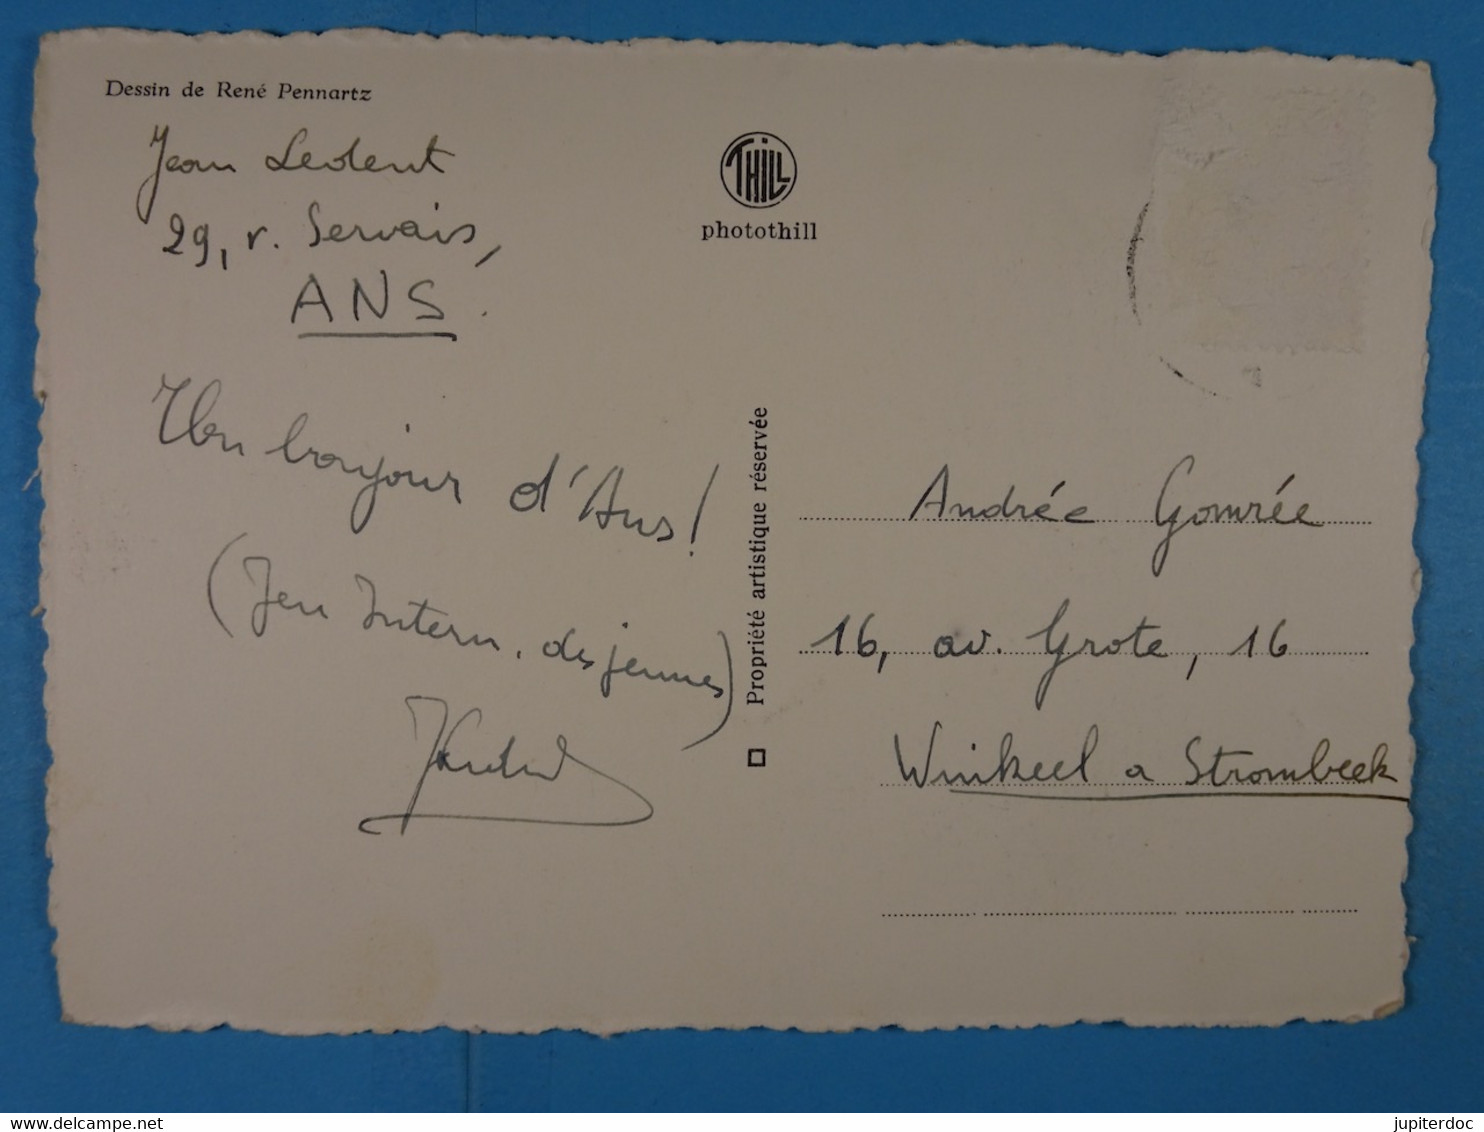 Dessin de René Pennartz
Jean Ledent
29, r. Servais,
ANS.
Un bonjour d'Ans!
(Jeu Intern. des jeunes)
THILL
photothill
Propriété artistique réservée
Andrée Gomrée
16, av. Grote, 16
Winkeel a Strombeek
jupiterdoc